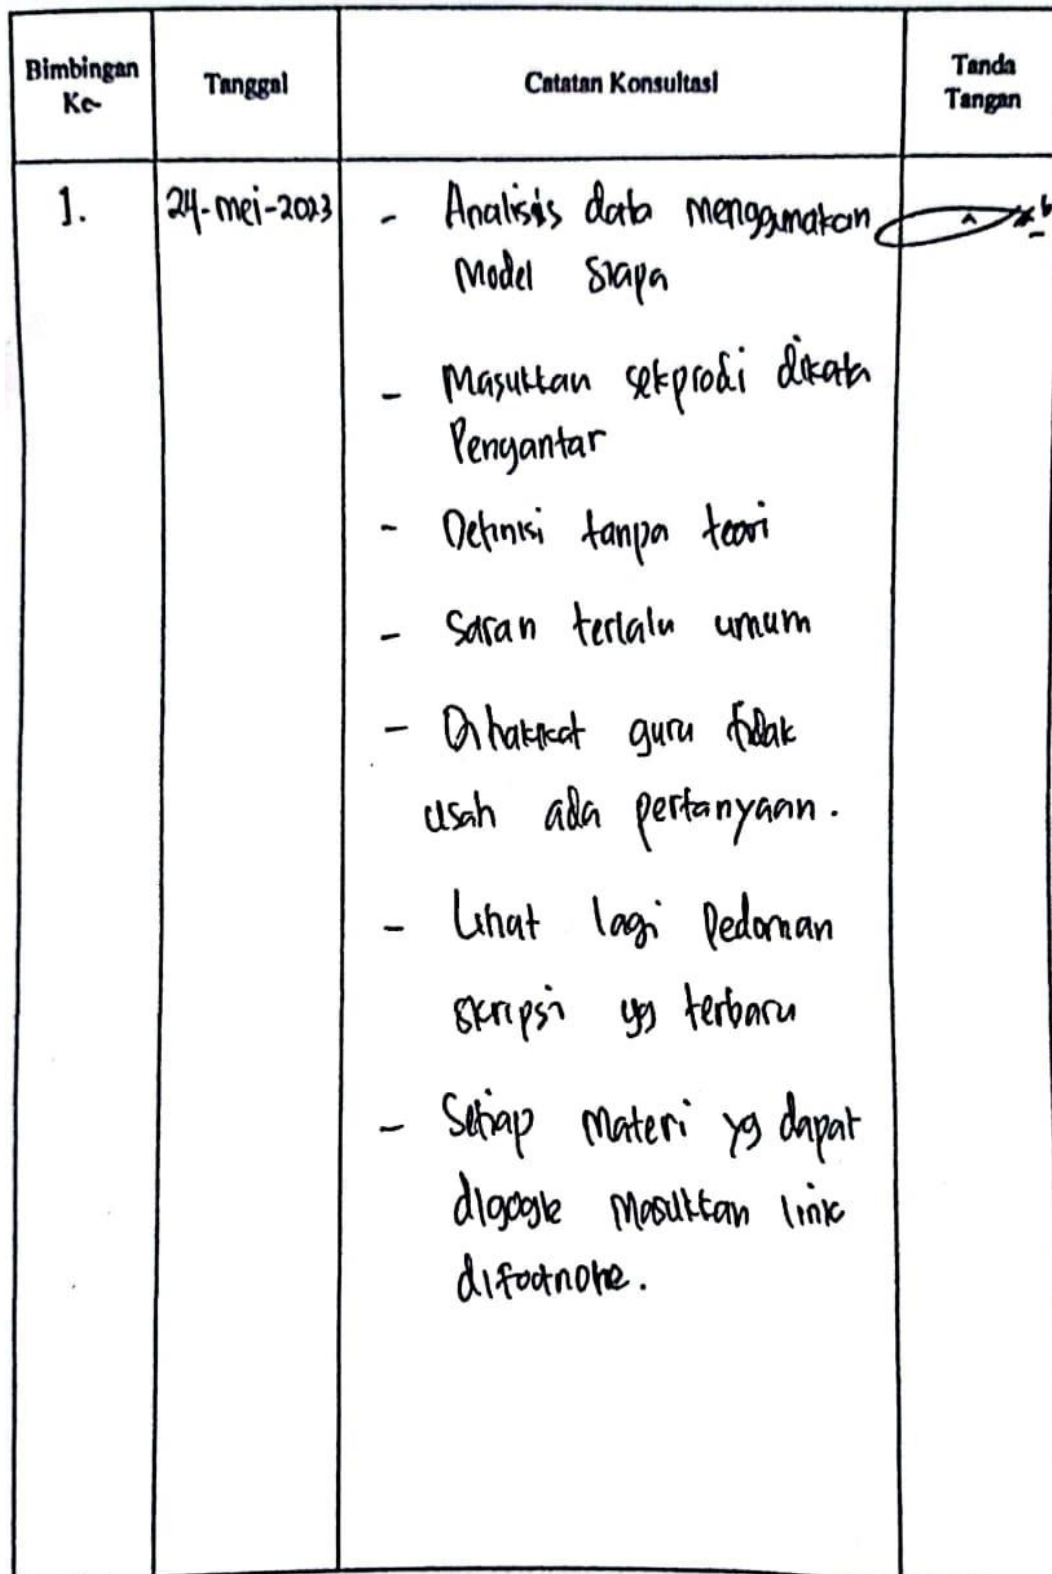 Bimbingan Ke-
Tanggal
Catatan Konsultasi
Tanda Tangan
1.
24-mei-2023
- Analisis data menggunakan
model siapa
- Masukkan sekprodi dikata
Pengantar
- Definisi tanpa teori
- Saran terlalu umum
- Dihakikat guru tidak
usah ada pertanyaan.
- Lihat lagi Pedoman
skripsi yg terbaru
- Setiap materi yg dapat
digoogle masukkan link
difootnote.